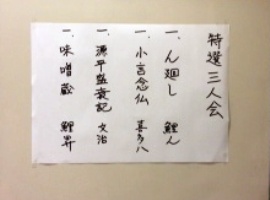 特選三人会
一、ん廻し 鯉ん
一、小言念仏 喜多八
一、源平盛衰記 文治
一、味噌蔵 鯉昇